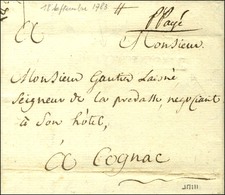 15 septembre 1788
P Payé
A Monsieur
Monsieur Gautier Laisné
Seigneur de la prodasse, negotiant
à Son hôtel,
à Cognac